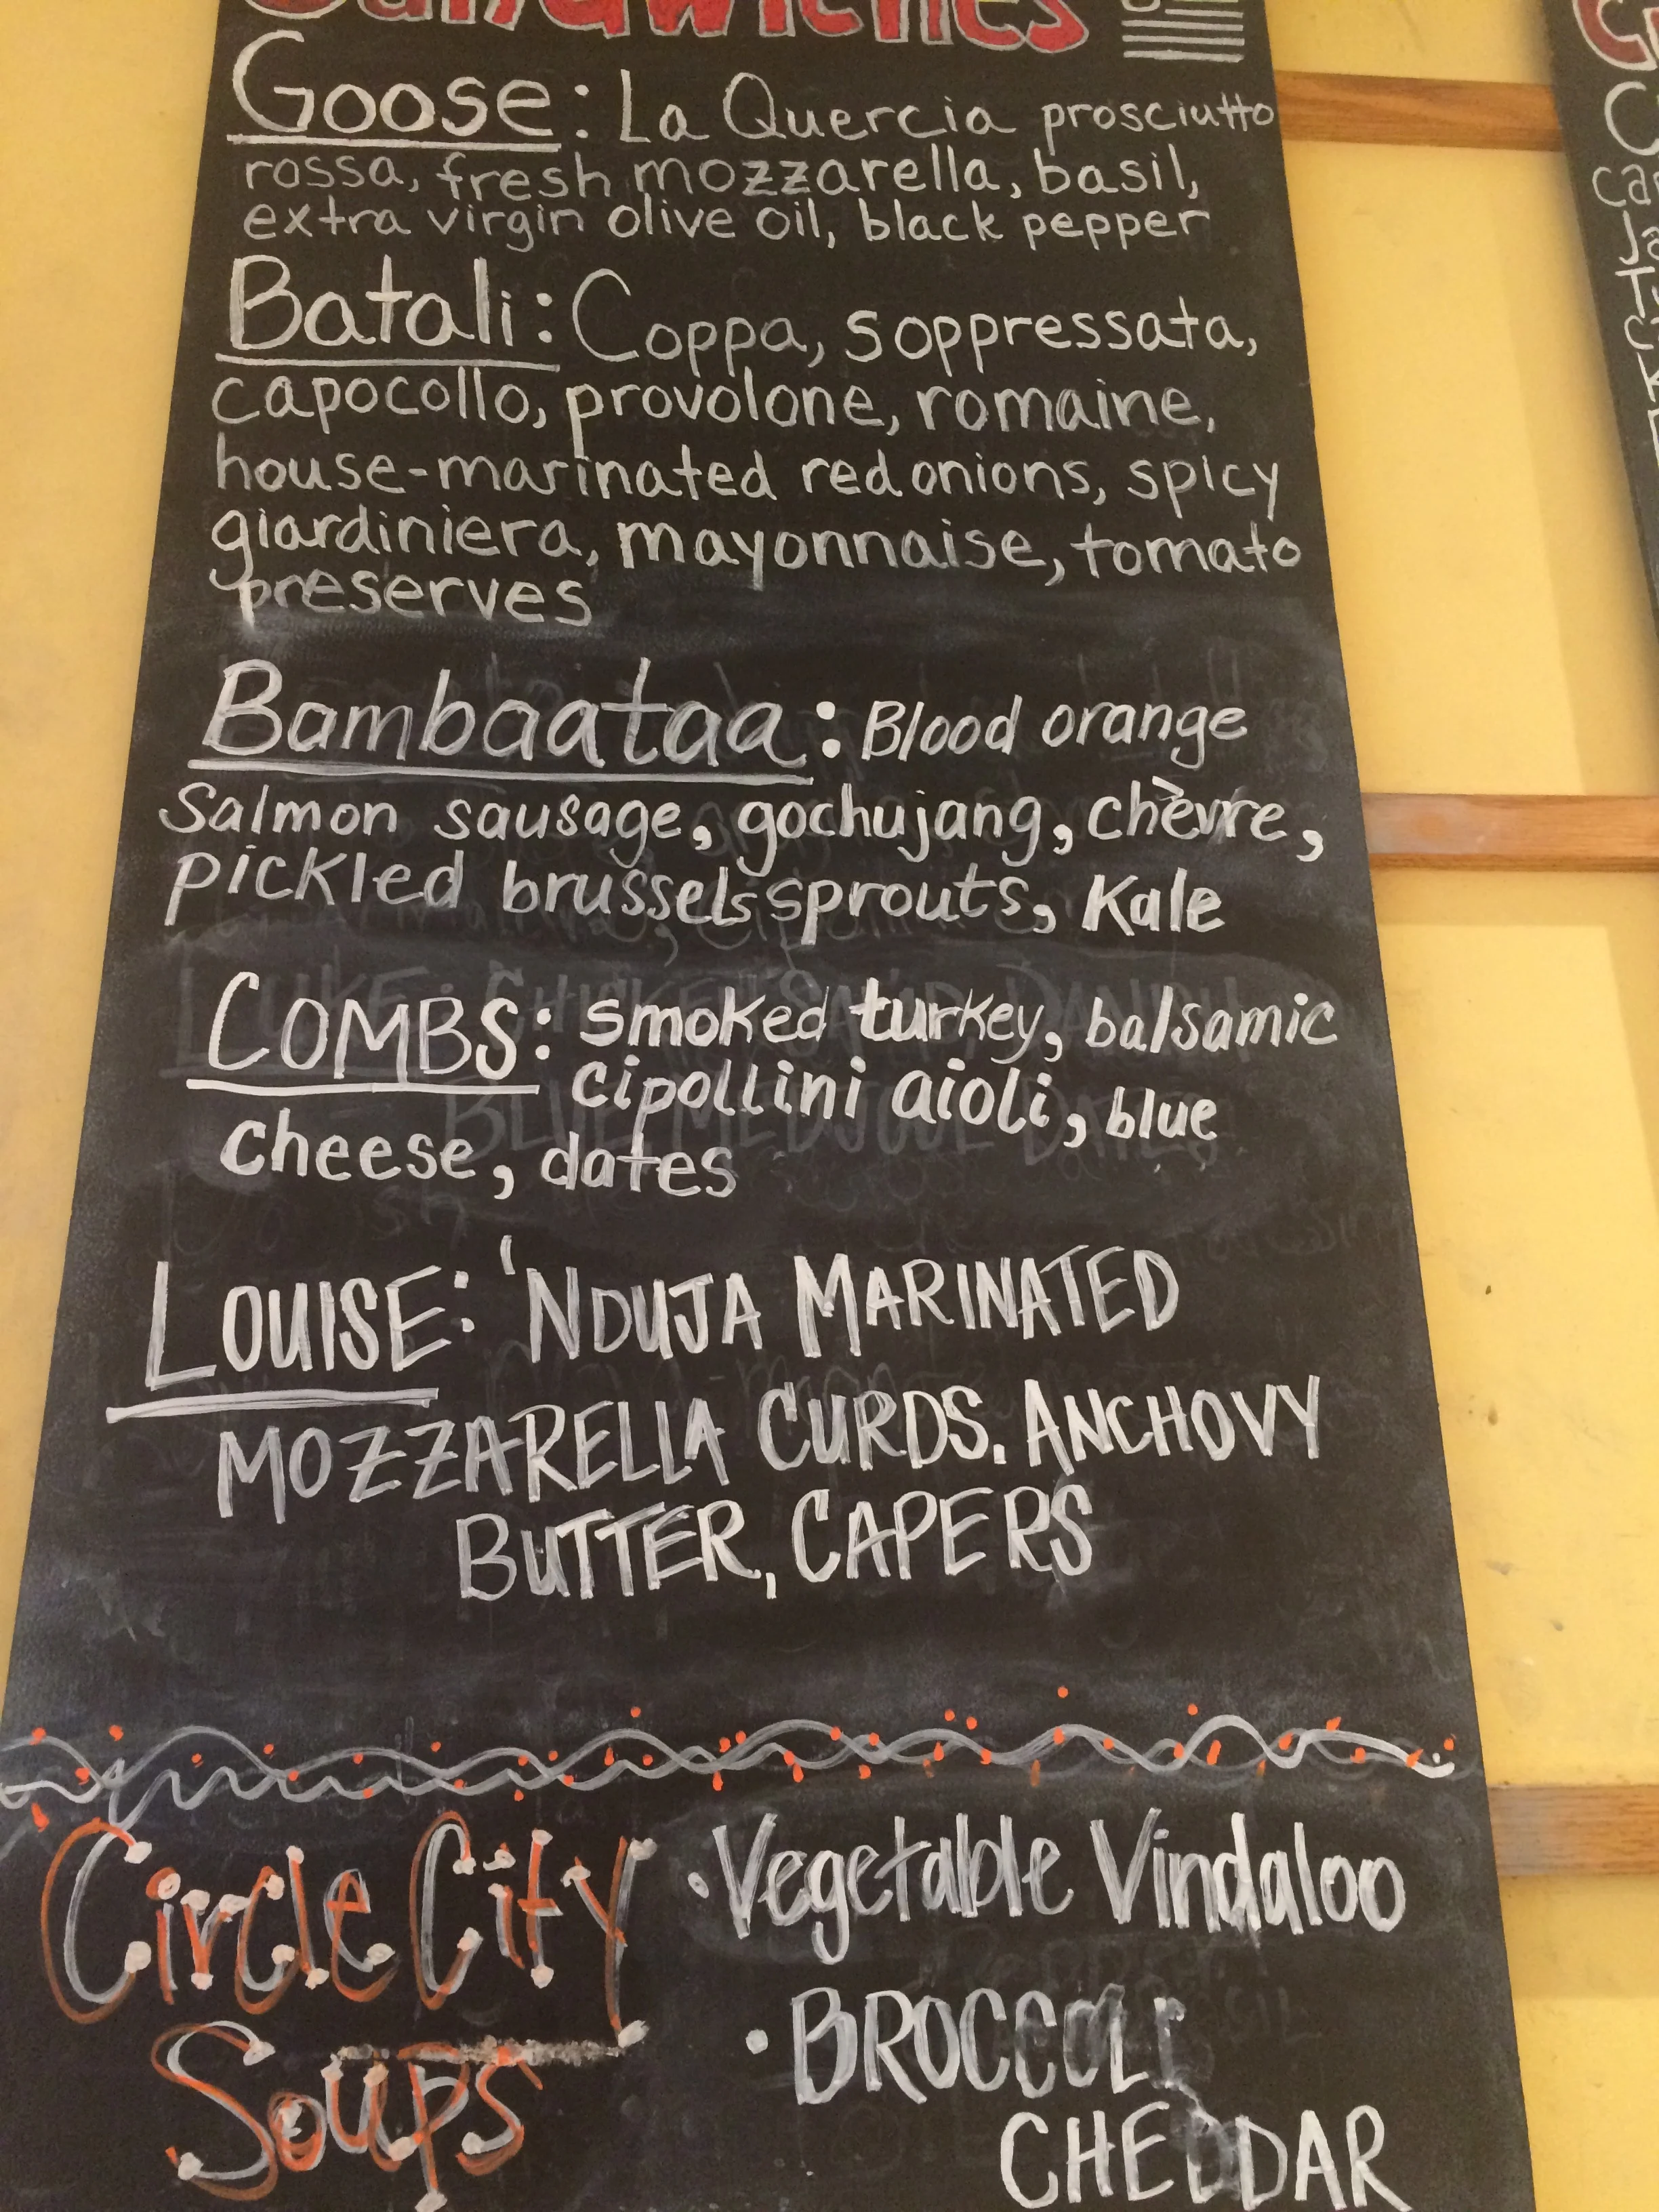 Sandwiches
Goose: La Quercia prosciutto
rossa, fresh mozzarella, basil,
extra virgin olive oil, black pepper
Batali: Coppa, soppressata,
capocollo, provolone, romaine,
house-marinated red onions, spicy
giardiniera, mayonnaise, tomato
preserves
Bambaataa: Blood orange
Salmon sausage, gochujang, chèvre,
pickled brussels sprouts, Kale
COMBS: smoked turkey, balsamic
cipollini aioli, blue
cheese, dates
LOUISE: 'NDUJA MARINATED
MOZZARELLA CURDS. ANCHOVY
BUTTER, CAPERS
Circle City
Soups
• Vegetable Vindaloo
• BROCCOLI
CHEDDAR